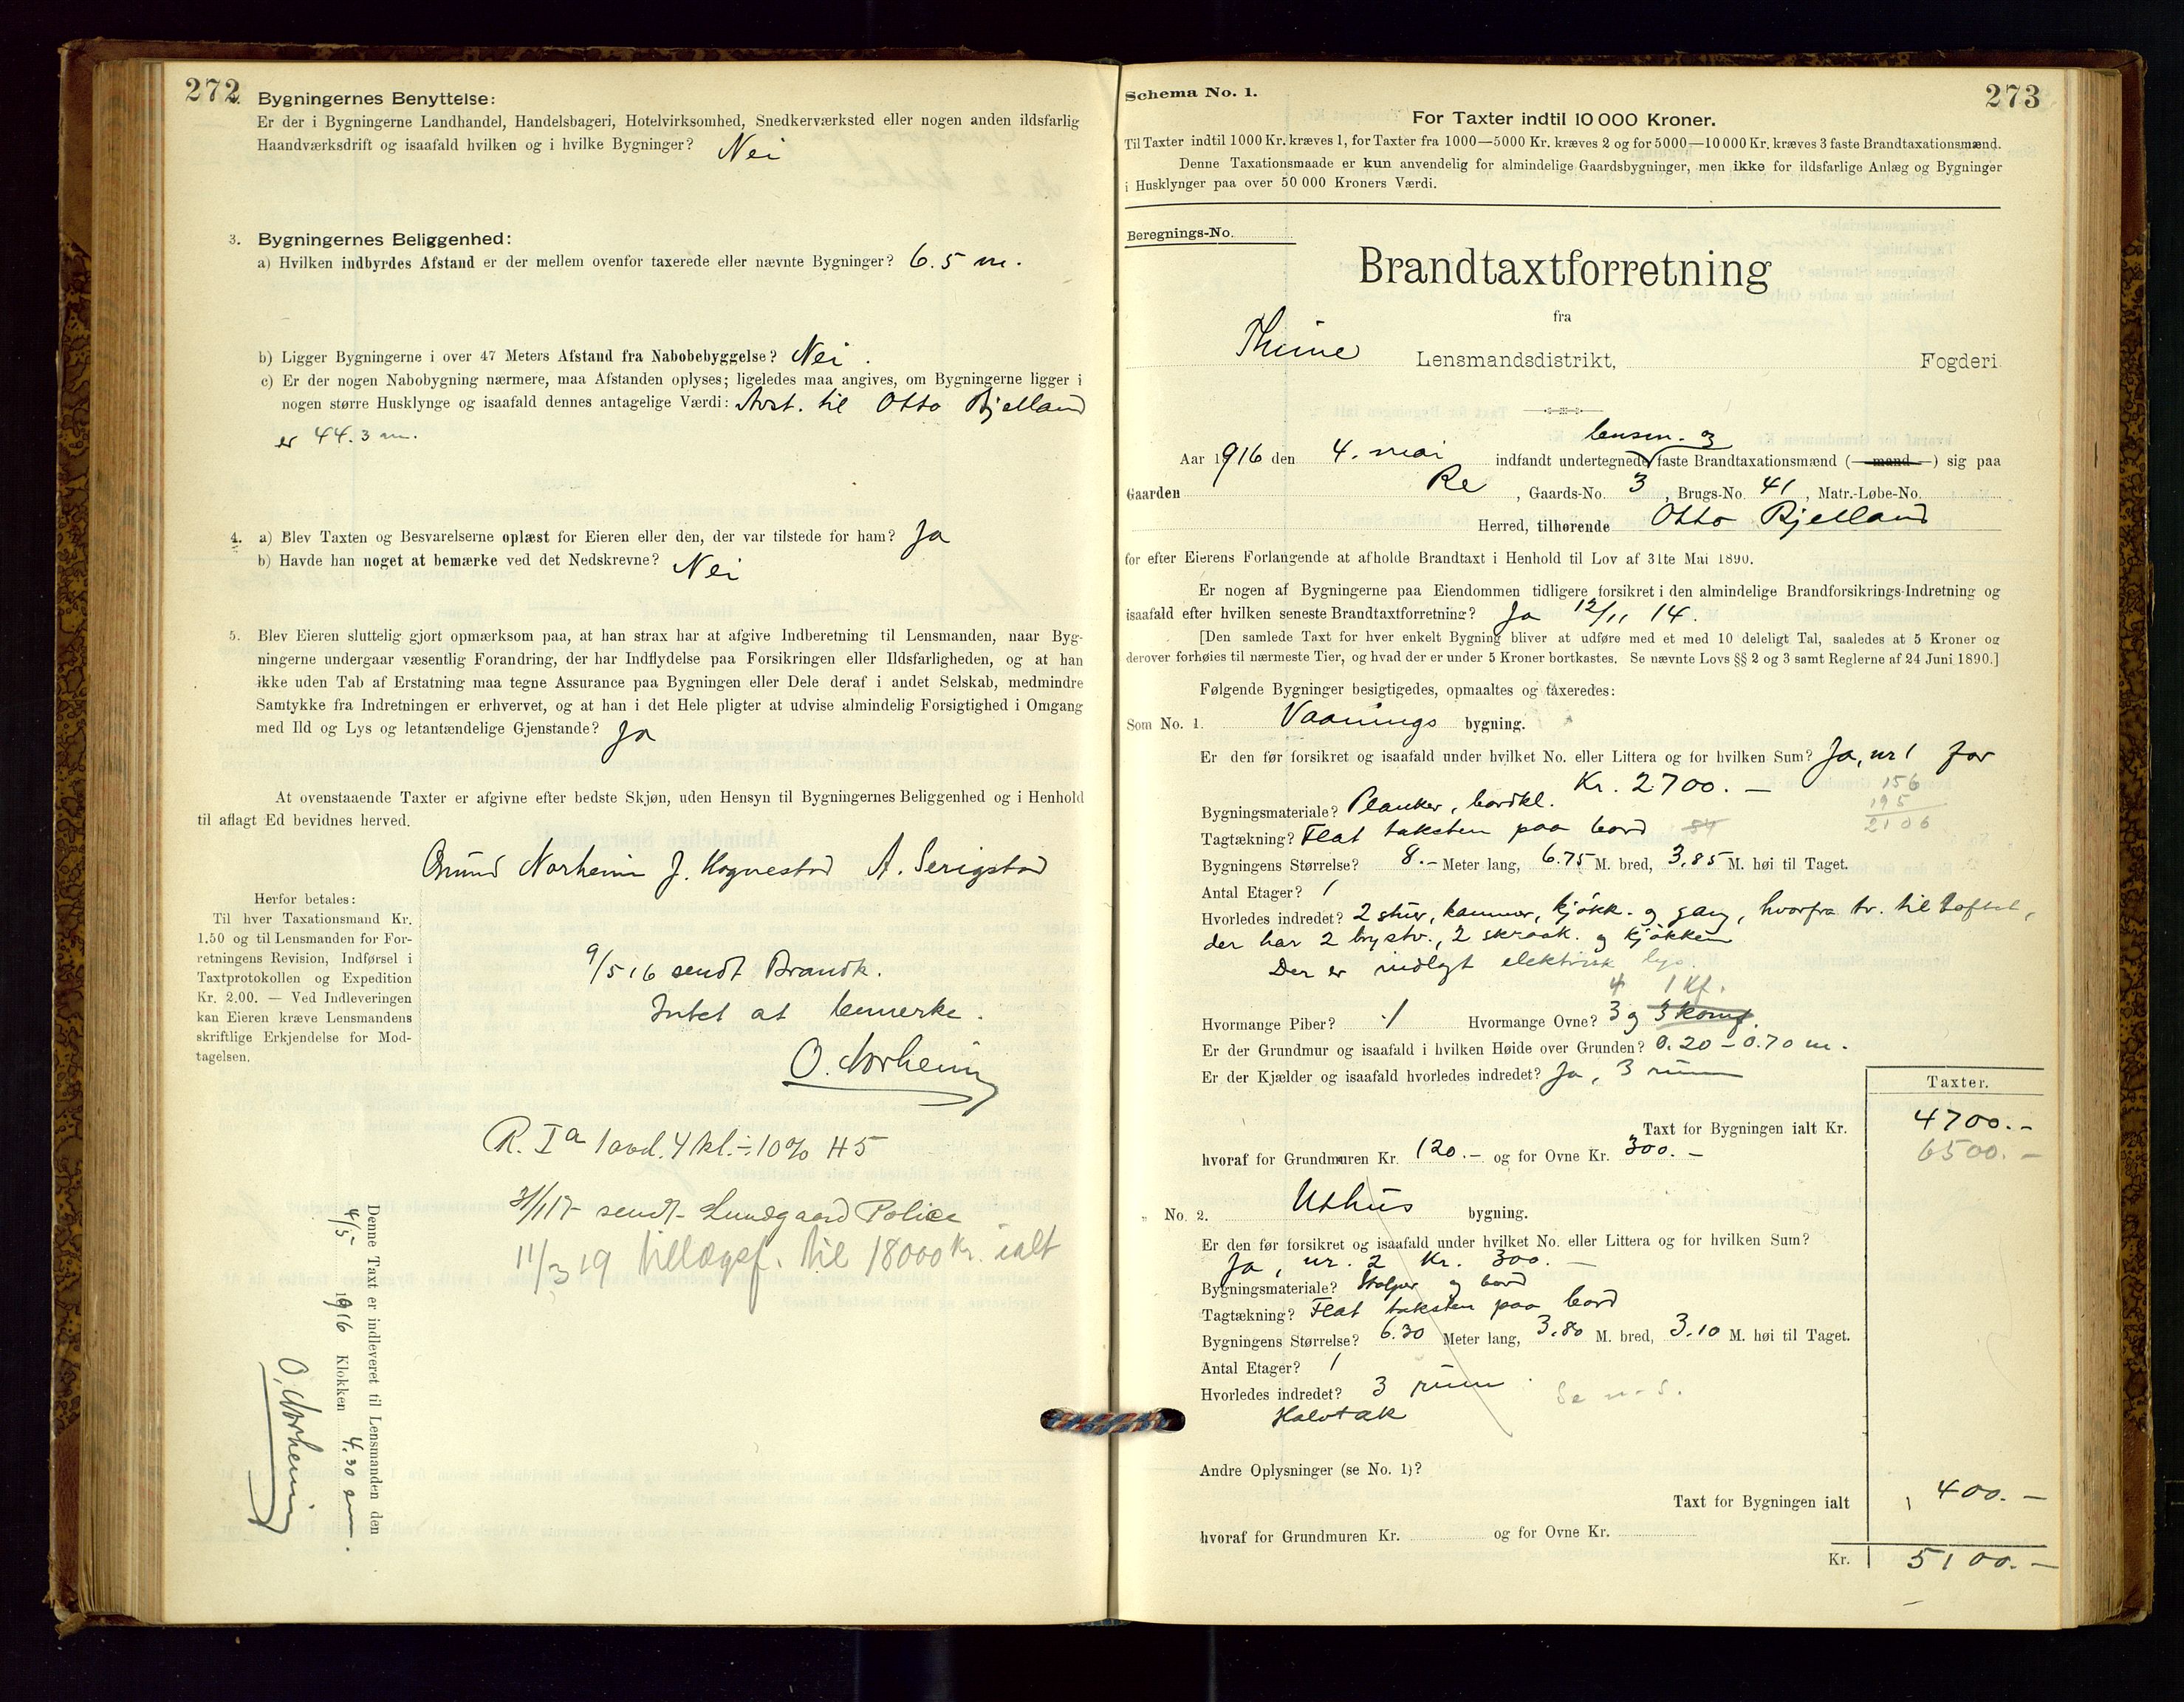 272
Bygningernes Benyttelse:
Er der i Bygningerne Landhandel, Handelsbageri, Hotelvirksomhed, Snedkerværksted eller nogen anden ildsfarlig
Haandværksdrift og isaafald hvilken og i hvilke Bygninger? Nei
3. Bygningernes Beliggenhed:
a) Hvilken indbyrdes Afstand er der mellem ovenfor taxerede eller nævnte Bygninger? 6.5 m.
b) Ligger Bygningerne i over 47 Meters Afstand fra Nabobebyggelse? Nei.
c) Er der nogen Nabobygning nærmere, maa Afstanden oplyses; ligeledes maa angives, om Bygningerne ligger i
nogen større Husklynge og isaafald dennes antagelige Værdi: Avst. til Otto Bjelland
er 44.3 m.
4. a) Blev Taxten og Besvarelserne oplæst for Eieren eller den, der var tilstede for ham? Ja
b) Havde han noget at bemærke ved det Nedskrevne? Nei
5. Blev Eieren sluttelig gjort opmærksom paa, at han strax har at afgive Indberetning til Lensmanden, naar Byg-
ningerne undergaar væsentlig Forandring, der har Indflydelse paa Forsikringen eller Ildsfarligheden, og at han
ikke uden Tab af Erstatning maa tegne Assurance paa Bygningen eller Dele deraf i andet Selskab, medmindre
Samtykke fra Indretningen er erhvervet, og at han i det Hele pligter at udvise almindelig Forsigtighed i Omgang
med Ild og Lys og letantændelige Gjenstande? Ja
At ovenstaaende Taxter er afgivne efter bedste Skjøn, uden Hensyn til Bygningernes Beliggenhed og i Henhold
til aflagt Ed bevidnes herved.
Omund Norheim J. Hognestad A. Serigstad
Herfor betales:
Til hver Taxationsmand Kr.
1.50 og til Lensmanden for For-
retningens Revision, Indførsel i
Taxtprotokollen og Expedition
Kr. 2.00. — Ved Indleveringen
kan Eieren kræve Lensmandens
skriftlige Erkjendelse for Mod-
tagelsen.
9/5 16 sendt Brandk.
Intet at bemerke.
O. Norheim
R. Ia 1 avd. 4 kl. ÷ 10% H5
31/1 17 sendt Lundgaard Police
11/3 19 tillægsf. til 18000 Kr. ialt
Denne Taxt er indleveret til Lensmanden den
4/5 1916 Klokken 4.30 em.
O. Norheim
273
Schema No. 1.
For Taxter indtil 10 000 Kroner.
Til Taxter indtil 1000 Kr. kræves 1, for Taxter fra 1000—5000 Kr. kræves 2 og for 5000—10000 Kr. kræves 3 faste Brandtaxationsmænd.
Denne Taxationsmaade er kun anvendelig for almindelige Gaardsbygninger, men ikke for ildsfarlige Anlæg og Bygninger
i Husklynger paa over 50 000 Kroners Værdi.
Beregnings-No.
Brandtaxtforretning
fra
Thime Lensmandsdistrikt, Fogderi
lensm. og
Aar 1916 den 4. mai indfandt undertegnede faste Brandtaxationsmænd (mand) sig paa
Gaarden Re, Gaards-No. 3, Brugs-No. 41, Matr.-Løbe-No.
Herred, tilhørende Otto Bjelland
for efter Eierens Forlangende at afholde Brandtaxt i Henhold til Lov af 31te Mai 1890.
Er nogen af Bygningerne paa Eiendommen tidligere forsikret i den almindelige Brandforsikrings-Indretning og
isaafald efter hvilken seneste Brandtaxtforretning? Ja 12/11 14.
[Den samlede Taxt for hver enkelt Bygning bliver at udføre med et med 10 deleligt Tal, saaledes at 5 Kroner og
derover forhøies til nærmeste Tier, og hvad der er under 5 Kroner bortkastes. Se nævnte Lovs §§ 2 og 3 samt Reglerne af 24 Juni 1890.]
Følgende Bygninger besigtigedes, opmaaltes og taxeredes:
Som No. 1. Vaanings bygning.
Er den før forsikret og isaafald under hvilket No. eller Littera og for hvilken Sum? Ja, nr 1 for
Kr. 2700. — 156
Bygningsmateriale? Planker, bordkl. 195
Tagtækning? Flat taksten paa bord 54 2106
Bygningens Størrelse? 8.- Meter lang, 6.75 M. bred, 3.85 M. høi til Taget.
Antal Etager? 1
Hvorledes indredet? 2 stuer, kammer, kjøkk. og gang, hvorfra tr. til loftet,
der har 2 brystv., 2 skraak. og kjøkken
Der er indlagt elektrisk lys.
4 1 Kf.
Hvormange Piber? 1 Hvormange Ovne? 3 og 3 komf.
Er der Grundmur og isaafald i hvilken Høide over Grunden? 0.20 - 0.70 m.
Er der Kjælder og isaafald hvorledes indredet? Ja, 3 rum
Taxter.
Taxt for Bygningen ialt Kr. 4700.-
6500.-
hvoraf for Grundmuren Kr. 120.- og for Ovne Kr. 300.-
" No. 2. Uthus bygning.
Er den før forsikret og isaafald under hvilket No. eller Littera og for hvilken Sum?
Ja, nr. 2 Kr. 300.-
Bygningsmateriale? Stolper og bord
Tagtækning? Flat taksten paa bord
Bygningens Størrelse? 6.30 Meter lang, 3.80 M. bred, 3.10 M. høi til Taget.
Antal Etager? 1
Hvorledes indredet? 3 rum.
Halvtak
Andre Oplysninger (se No. 1)?
Taxt for Bygningen ialt 400.-
hvoraf for Grundmuren Kr. og for Ovne Kr.
Kr. 5100.-